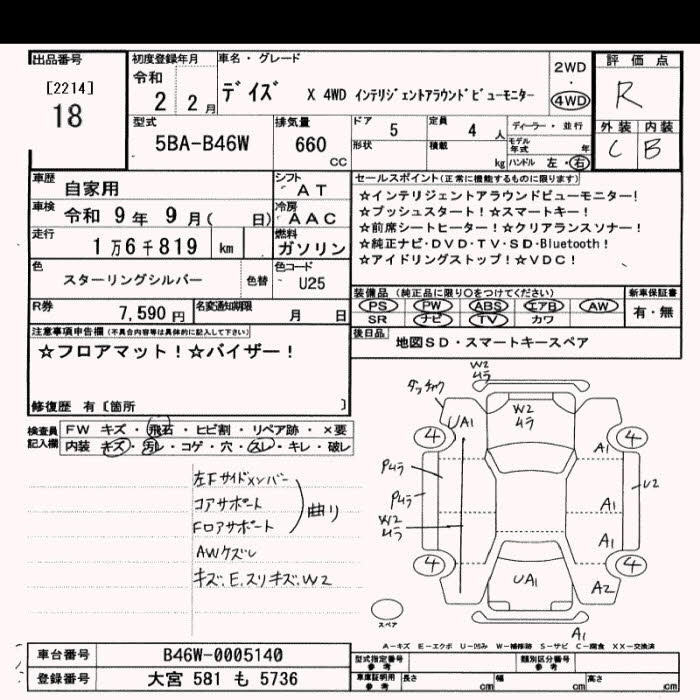 出品番号
[2214]
18
初度登録年月
令和
2 2月
車名・グレード
デイズ X 4WD インテリジェントアラウンドビューモニター
2WD
・
4WD
評価点
R
外装 内装
C B
型式
5BA-B46W
排気量
660
CC
ドア
5
定員
4 人
形状
積載
kg
ディーラー・並行
モデル年式 年
ハンドル 左・右
車歴
自家用
シフト
AT
車検
令和 9年 9月( 日)
冷房
AAC
走行
1万6千819 km
燃料
ガソリン
色
スターリングシルバー
色替
色コード
U25
R券
7,590円
名変通知期限
月 日
セールスポイント(正常に機能するものに限ります)
☆インテリジェントアラウンドビューモニター!
☆プッシュスタート!☆スマートキー!
☆前席シートヒーター!☆クリアランスソナー!
☆純正ナビ・DVD・TV・SD・Bluetooth!
☆アイドリングストップ!☆VDC!
装備品(純正品に限り○をつけてください)
PS PW ABS エアB AW
SR ナビ TV カワ
新車保証書
有・無
後日品
地図SD・スマートキースペア
注意事項申告欄(不具合内容等は具体的に記入して下さい)
☆フロアマット!☆バイザー!
修復歴 有〔箇所 〕
検査員記入欄
FW キズ・飛石・ヒビ割・リペア跡・×要
内装 キズ・汚レ・コゲ・穴・スレ・キレ・破レ
左Fサイドメンバー
コアサポート
Fロアサポート
曲り
AWケズレ
キズ、E、スリキズ、W2
W2
ムラ
タッチアップ
UA1
W2
ムラ
4
4
A1
Pムラ
Pムラ
U2
A1
W2
ムラ
A1
4
4
UA1
A2
A1
スペア
A-キズ E-エクボ U-凹み W-補修跡 S-サビ C-腐食 XX-交換済
車台番号
B46W-0005140
登録番号
大宮 581 も 5736
型式指定番号
参考
類別区分番号
参考
車庫証明用
参考
長さ cm
幅 cm
高さ cm